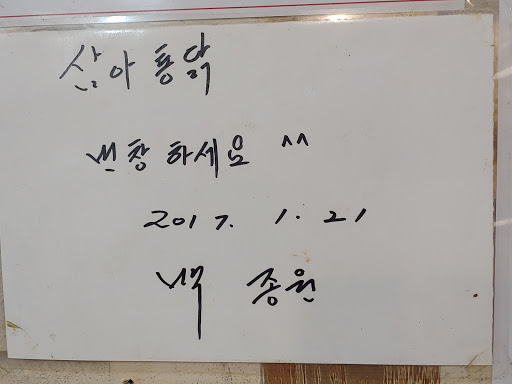 삼아통닭
번창하세요 ^^
2017. 1. 21
백 종원